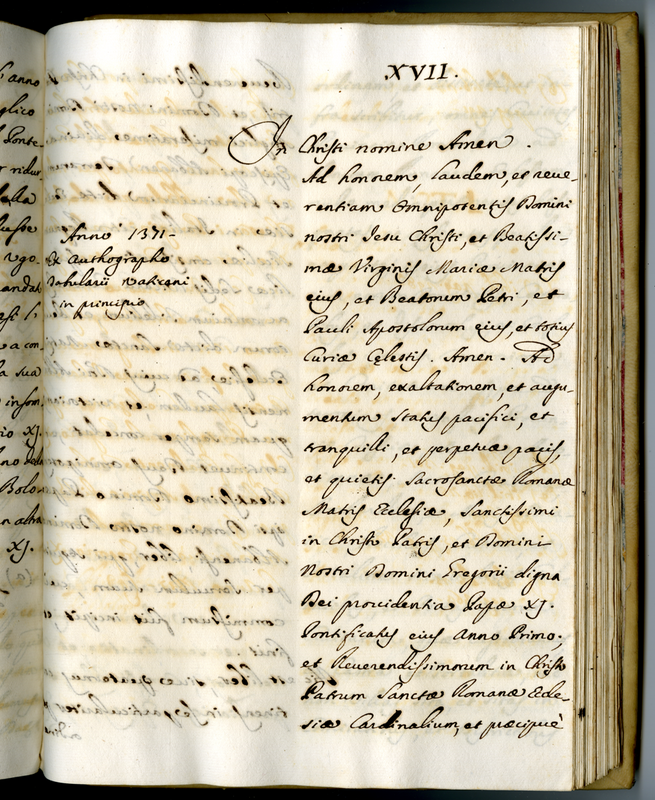 XVII.
In Christi nomine Amen.
Ad honorem, laudem, et reve-
rentiam Omnipotentis Domini
nostri Iesu Christi, et Beatissi-
mæ Virginis Mariæ Matris
eius, et Beatorum Petri, et
Pauli Apostolorum eius, et totius
Curiæ Cęlestis. Amen. Ad
honorem, exaltationem, et augu-
mentum status pacifici, et
tranquilli, et perpetuæ pacis,
et quietis Sacrosanctæ Romanæ
Matris Ecclesiæ, Sanctissimi
in Christo Patris, et Domini
Nostri Domini Gregorii digna
Dei providentia Papæ XJ.
Pontificatus eius Anno Primo;
et Reverendissimorum in Christo
Patrum Sanctæ Romanæ Eccle-
siæ Cardinalium, et præcipuè
Anno 1371-
Ex Authographo
Tabularii Vaticani
in principio
anno
XJ.